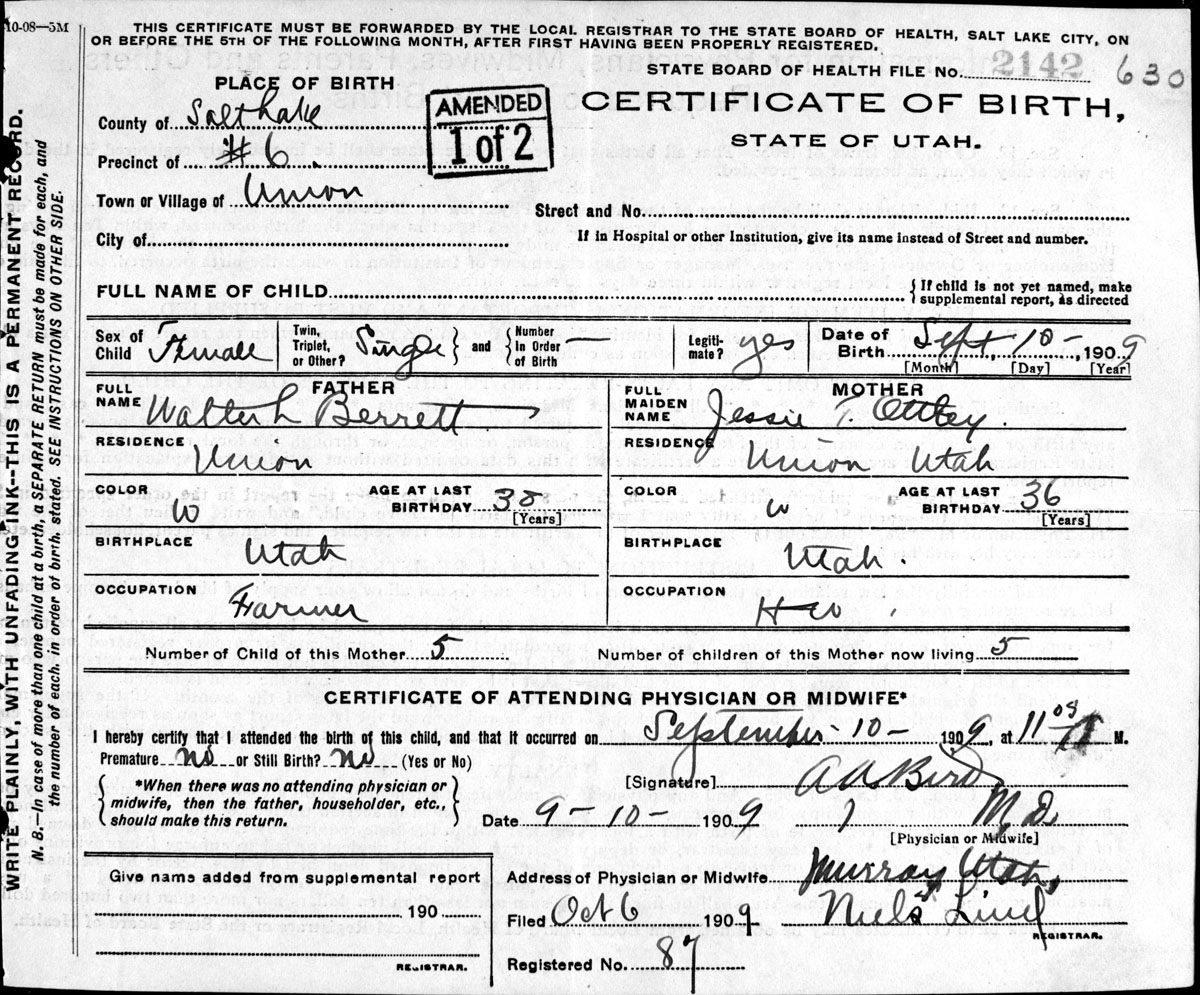 10-08—5M
THIS CERTIFICATE MUST BE FORWARDED BY THE LOCAL REGISTRAR TO THE STATE BOARD OF HEALTH, SALT LAKE CITY, ON
OR BEFORE THE 5TH OF THE FOLLOWING MONTH, AFTER FIRST HAVING BEEN PROPERLY REGISTERED.
STATE BOARD OF HEALTH FILE NO. 2142 630
PLACE OF BIRTH
AMENDED
1 of 2
CERTIFICATE OF BIRTH,
STATE OF UTAH.
County of Salt Lake
Precinct of #6
Town or Village of Union
Street and No.
City of
If in Hospital or other Institution, give its name instead of Street and number.
FULL NAME OF CHILD
{If child is not yet named, make
supplemental report, as directed
Sex of Child Female
Twin, Triplet, or Other? Single } and { Number In Order of Birth —
Legiti-mate? yes
Date of Birth Sept, 10 - 1909
[Month] [Day] [Year]
FATHER
FULL NAME Walter L Berrett
RESIDENCE
Union
COLOR
W
AGE AT LAST BIRTHDAY 38
[Years]
BIRTHPLACE
Utah
OCCUPATION
Farmer
MOTHER
FULL MAIDEN NAME Jessie Ottley.
RESIDENCE
Union Utah
COLOR
W
AGE AT LAST BIRTHDAY 36
[Years]
BIRTHPLACE
Utah.
OCCUPATION
H W
Number of Child of this Mother 5
Number of children of this Mother now living 5
CERTIFICATE OF ATTENDING PHYSICIAN OR MIDWIFE*
I hereby certify that I attended the birth of this child, and that it occurred on September - 10 - 1909, at 11 M.
Premature no or Still Birth? No (Yes or No)
{*When there was no attending physician or
midwife, then the father, householder, etc.,
should make this return.}
[Signature] Bird
Date 9-10- 1909 M.D.
[Physician or Midwife]
Give name added from supplemental report
190
REGISTRAR.
Address of Physician or Midwife Murray Utah,
Filed Oct 6 1909 Niels Lind
REGISTRAR.
Registered No. 87
WRITE PLAINLY, WITH UNFADING INK--THIS IS A PERMANENT RECORD.
N. B.—In case of more than one child at a birth, a SEPARATE RETURN must be made for each, and
the number of each, in order of birth, stated. SEE INSTRUCTIONS ON OTHER SIDE.